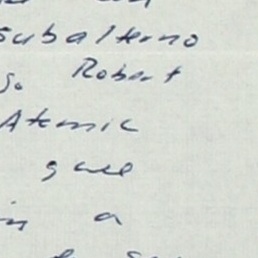 subalterno
Go. Robert
Atomic
gave
in a